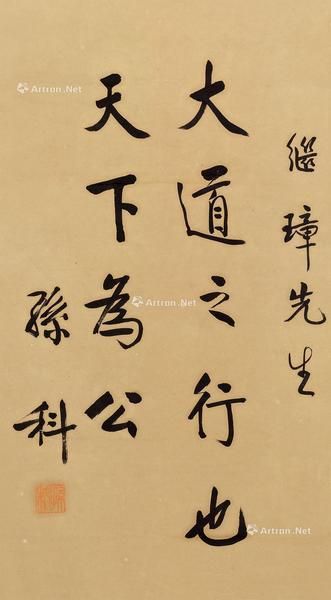 继璋先生
大道之行也
天下為公
孫科
Artron.Net
Artron.Net
Artron.Net